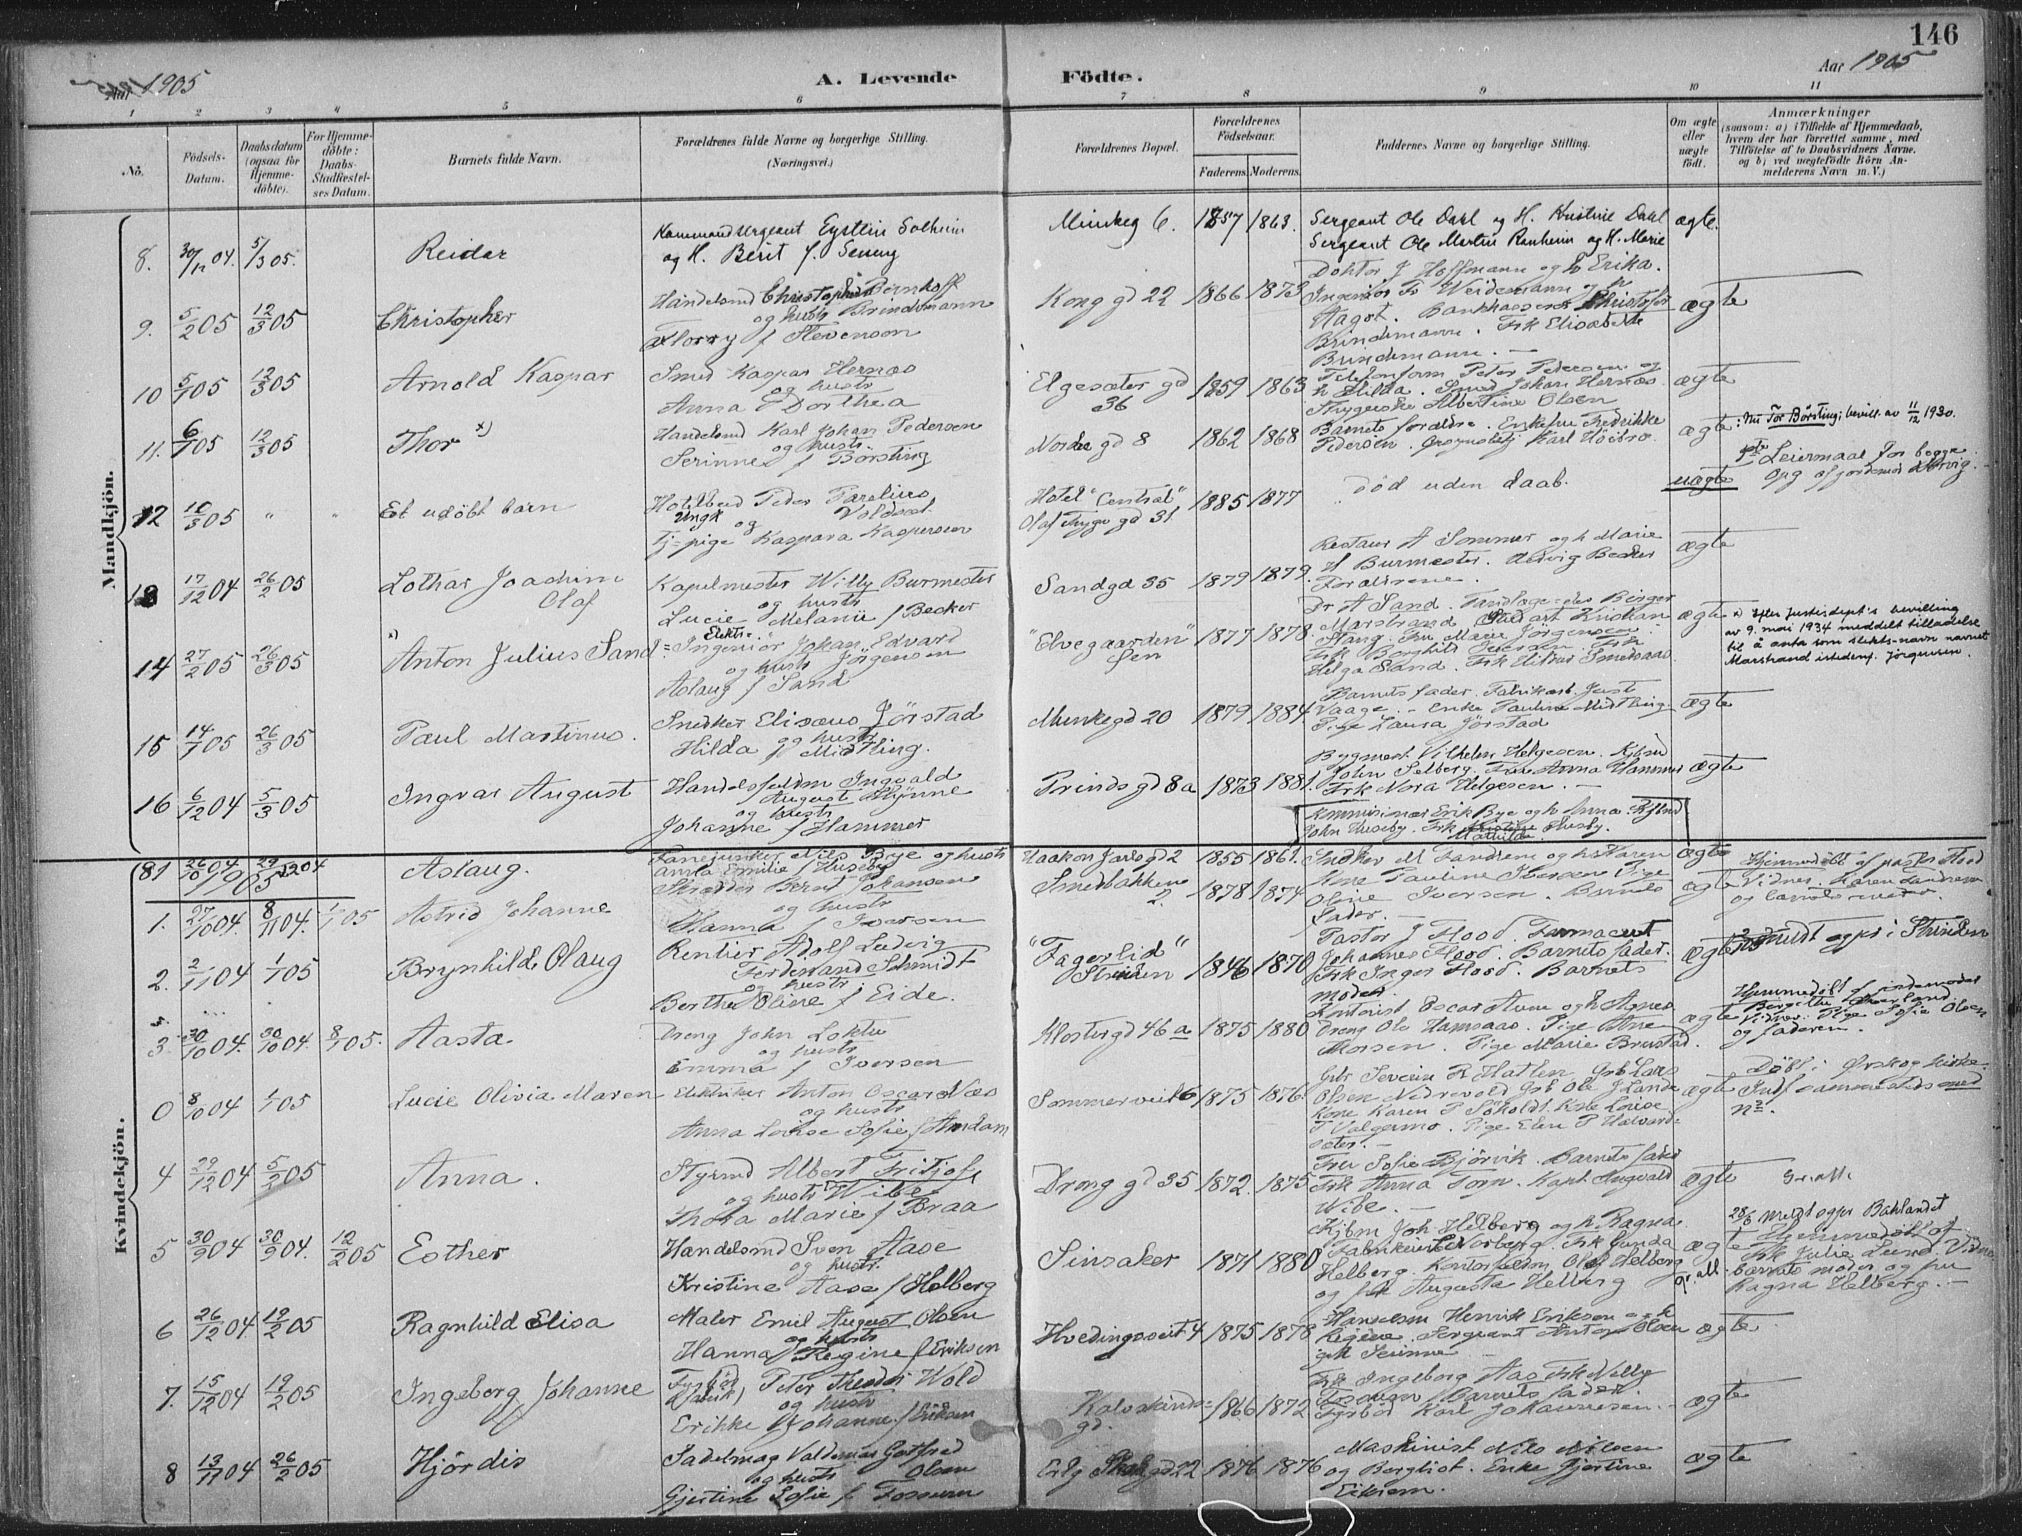 146
Aar 1905
A. Levende
Födte.
Aar 1905
1 2 3 4 5 6 7 8 9 10 11
No.
Födsels-Datum.
Daabsdatum (ogsaa for Hjemme-döbte).
For Hjemme-döbte: Daabs-Stadfæstel-ses Datum.
Barnets fulde Navn.
Forældrenes fulde Navne og borgerlige Stilling.
(Næringsvei.)
Forældrenes Bopæl.
Forældrenes Födselsaar.
Faderens. Moderens.
Faddernes Navne og borgerlige Stilling.
Om ægte eller uægte födt.
Anmærkninger
(saasom: a) i Tilfælde af Hjemmedaab, hvem der har forrettet samme, med Tilföielse af to Daabsvidners Navne, og b) ved uægtefödte Börn An-melderens Navn m. V.)
Mandkjön.
8. 30/11 04. 5/3 05. Reidar
Kommandersergeant Eystein Solheim
og H. Berit f. Semmy
Munkeg 6. 1857 1863.
Sergeant Ole Dahl og H. Kristine Dahl
Sergeant Ole Martin Ranheim og H. Marie
ægte.
9. 5/2 05 12/3 05 Christopher
Handelsmd Christopher Bernhoff
og hustr Brindemann
Florry f Stevenson
Kong gd 22 1866 1873
Doktor J Hoffmann og h Erika.
Ingeniör Fr Weidemann og h
Hagot. Bankkasserer Christofer
Brindemann. Frk Elisabeth
Brindemann. —
ægte
10 5/1 05 12/3 05 Arnold Kaspar
Smed Kaspar Hernæs
og hustr
Anna Dorthea
Elgesæter gd 36 1859 1863
Telefonform Peter Petersen og
h Hilda. Smed Johan Hernæs
Strygerske Albertine Olsen
ægte
11. 6/1 05 12/3 05 Thor x)
Handelsmd Karl Johan Pedersen
og hustr.
Serinne f Børsting
Nordre gd 8 1862 1868
Barnets forældre. Enkefru Fredrikke
Pedersen. Karl Höibro
ægte
: Nu Tor Børsting; bevill. av 11/12 1930.
12 10/3 05 " " Et udöbt barn
Peter Farelius
Ungk og Voldset
Tj=pige Kaspara Kaspersen
Hotel "Central"
Olaf Trygv gd 31 1885 1877
Död uden daab.
uægte
1ste Leiermaal for begge.
Opg af jordemor
13 17/12 04 26/2 05 Lothar Joachim
Olaf
Kapelmester Willy Burmester
og hustr
Lucie Melanie f Becker
Sandgd 35 1879 1879.
Restaur A Sommer og h Marie
H Burmester. Hedvig Becker
Forældrene.
ægte
14 27/2 05 26/3 05 x) Anton Julius Sand
Elektr.=Ingeniör Johan Edvard
og hustr Jörgensen
Aslaug f Sand
"Elvegaarden" 1877 1878.
Dr A Sand. Tandlæge Birger
Marstrand. Kristian
Stang. Fru Marie Jörgensen.
Helga Sand.
ægte
x) Efter Justisdept's bevilling
av 9. mai 1934 meddelt tilladelse
til å anta som slekts-navn navnet
Marstrand istedenf. Jörgensen.
15 14/1 05 26/3 05 Paul Martinus.
Snedker Elisæus Jörstad
og hustr
Hilda f Midtling.
Munkegd 20 1879 1884
Barnets fader. Fabrikarb. Just
Vaage. – Enke Pauline Midtling
Pige Laura Jörstad
ægte
16 6/12 04 5/3 05 Ingvar August
Handelsfuldm Ingvald
August Thynne
og hustr
Johanne f Hammer
Prinds gd 8a 1873 1881.
Bygmest Vilhelm Helgesen. Kjöbmd
John Selberg. Frue Anna Hammer
Frk Nora Helgesen. —
ægte
Kommisionær Erik Bye og h Anna. Kjöbmd
John Huseby. Frk Mathilde Husby.
Kvindekjön.
81 26/10 04 29/12 04 Aslaug.
Fanejunker Nils Bye og hustr
Anna Emilie f Huseby
Haakon Jarls gd 2 1855 1861.
ægte
1905
1. 27/10 04. 8/11 04. 1/1 05 Astrid Johanne
Skrædder Bernt Johansen
og hustr
Hanna f Iversen
Smedbakken 2. 1878 1874
Snedker M Sandrene og h Karen
Kone Pauline Iversen. Pige
Oline Iversen. Barnets
fader. —
ægte
Hjemmedöbt af pastor Flood
Vidner. Karen Sandrene
og barnets moder.
2. 2/11 04 1/1 05 Brynhild Olaug
Rentier Adolf Ludvig
Ferdinand Schmidt
og hustr
Berthe Oline f Eide.
"Fagerlid"
Strinden 1846 1870
Pastor J Flood. Farmaceut
Johannes Flood. Barnets fader.
Frk Inger Flood. Barnets
moder
ægte
meldt ogpr i Strinden
3. 30/10 04. 30/10 04. 8/1 05. Aasta
Dreng John Loktu
og hustr
Emma f Iversen
Klostergd 46 a 1875 1880
Kontorist Oscar Aune og h Agnes
Dreng Ole Hamsaas. Pige Anne
Morsen. Pige Marie Brustad.
ægte
Hjemmedöbt af jordemoder
Bergitte
Vidner. Pige Sofie Olsen
og faderen.
0 8/10 04 1/1 05 Lucie Olivia Maren
Elektriker Anton Oscar Næs
og hustr
Anna Lovise Sofie f Amdam
Sommerveit 6 1875 1876.
Gbr Severin R Hatlen Gbr Lars
Olsen Nedrevold Gbr Ole J Lande
Kone Karen P Sökoldt. Kone Lovise
T Valgermo. Pige Elen P Halvard-
seter. —
ægte
Döbt i Örskog kirke.
4 29/12 04 5/2 05 Anna.
Styrmd Albert Fritjof
og hustr Wibe
Thora Marie f Braa
Dronn gd 35 1872. 1875
Fru Sofie Björvik. Barnets fader
Frk Anna Torp. Kapt Ingvald
Wibe. —
ægte
Gr. att.
5 30/9 04 30/9 04. 12/2 05 Esther
Handelsmd Sven Aase
og hustr.
Kristine Aase f Helberg
Sinsaker 1871 1880
Kjbm Joh Helberg og h Ragna.
Frk Gunda
Helberg. Kontorfuldm Olaf Helberg
og frk Augusta Helberg
ægte
gr. att.
28/6 meldt ogpr Baklandet
Hjemmedöbt af
frk Julie Lund. Vidner
barnets moder og fru
Ragna Helberg. —
6 26/12 04 19/2 05 Ragnhild Elisa
Maler Emil August Olsen
og hustr
Hanna Regine f Eriksen
Hvedingsveit 4 1875 1878
Handelsm Henrik Eriksen og h
Regine. Sergeant Anton Olsen
ægte
7. 15/12 04 19/2 05 Ingeborg Johanne
Fyrböd Peter Theodor Wold
og hustr
Erikke Johanne f Eriksen
Kalvskinds=
gd. 1866 1872
Frk Ingeborg Aas Frk Nelly
Barnets fader.
Fyrböd Karl Johannesen. —
ægte
8 13/11 04 26/2 05 Hjördis
Sadelmag Valdemar Gotfred
og hustr Olsen
Gjertine Sofie f Fossum
Erlg Skakkes gd 22 1876 1876
Maskinist Nils Nilsen
og Bergliot. Enke Gjertine
Eiksem.
ægte